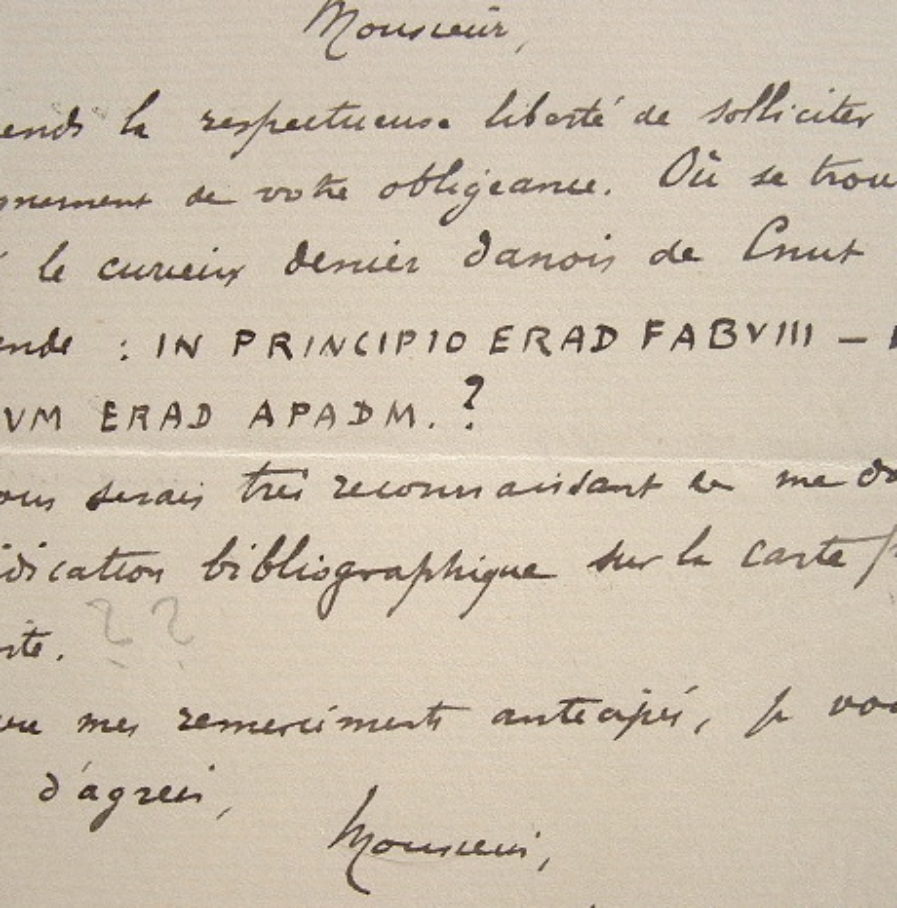 Monsieur,
ends la respectueuse liberté de solliciter
gnement de votre obligeance. Où se trou
le curieux denier danois de Cnut
ende : IN PRINCIPIO ERAD FABVIII —
VM ERAD APADM. ?
ous serais très reconnaissant en me do
dication bibliographique sur la carte p
ste. ??
mes remerciments anticipés, je vou
d'agréer,
Monsieur,